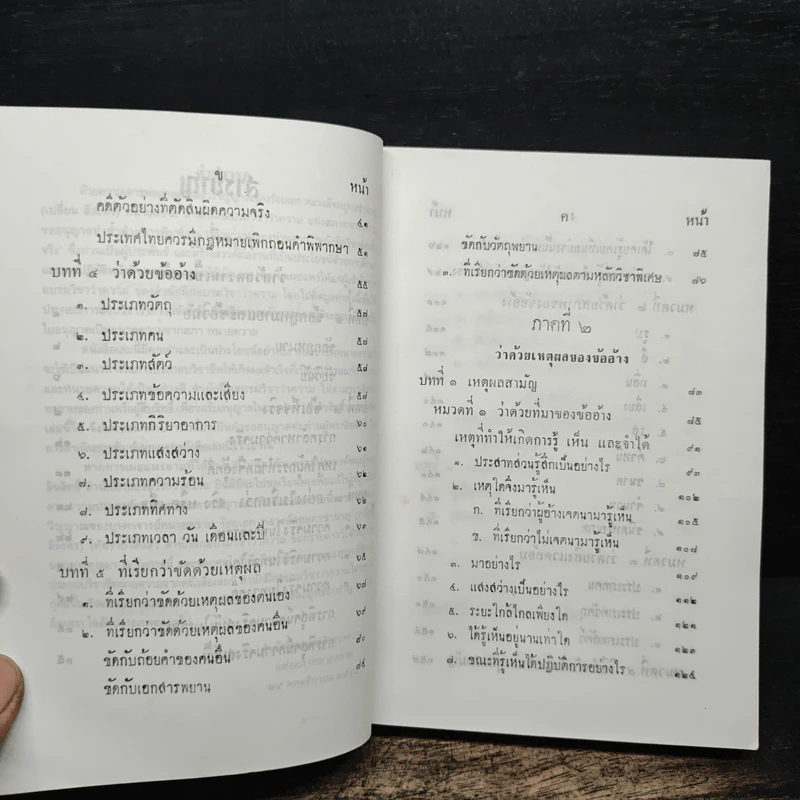 ข
หน้า
คดีตัวอย่างที่ตัดสินผิดความจริง ๔๑
ประเทศไทยควรมีกฎหมายเพิกถอนคำพิพากษา ๕๑
บทที่ ๔ ว่าด้วยข้ออ้าง ๕๕
๑. ประเภทวัตถุ ๕๗
๒. ประเภทคน ๕๘
๓. ประเภทสัตว์ ๕๘
๔. ประเภทข้อความและเสียง ๕๘
๕. ประเภทกิริยาอาการ ๖๐
๖. ประเภทแสงสว่าง ๖๑
๗. ประเภทความร้อน ๖๒
๘. ประเภททิศทาง ๖๒
๙. ประเภทเวลา วัน เดือนและปี ๖๓
บทที่ ๕ ที่เรียกว่าขัดด้วยเหตุผล ๖๕
๑. ที่เรียกว่าขัดด้วยเหตุผลของตนเอง ๖๗
๒. ที่เรียกว่าขัดด้วยเหตุผลของคนอื่น ๖๙
ขัดกับถ้อยคำของคนอื่น
ขัดกับเอกสารพยาน
ค
หน้า
ขัดกับวัตถุพยาน ๗๕
๓. ที่เรียกว่าขัดด้วยเหตุผลตามหลักวิชาพิเศษ ๗๖
ภาคที่ ๒
ว่าด้วยเหตุผลของข้ออ้าง
บทที่ ๑ เหตุผลสามัญ ๘๓
หมวดที่ ๑ ว่าด้วยที่มาของข้ออ้าง ๘๕
เหตุที่ทำให้เกิดการรู้ เห็น และจำได้ ๙๑
๑. ประสาทส่วนรู้สึกเป็นอย่างไร ๙๓
๒. เหตุใดจึงมารู้เห็น ๑๐๒
ก. ที่เรียกว่าผู้อ้างเจตนามารู้เห็น ๑๐๕
ข. ที่เรียกว่าไม่เจตนามารู้เห็น ๑๐๘
๓. มาอย่างไร ๑๐๙
๔. แสงสว่างเป็นอย่างไร ๑๑๒
๕. ระยะใกล้ไกลเพียงใด ๑๒๑
๖. ได้รู้เห็นอยู่นานเท่าใด ๑๒๓
๗. ขณะที่รู้เห็นได้ปฏิบัติการอย่างไร ๑๒๔